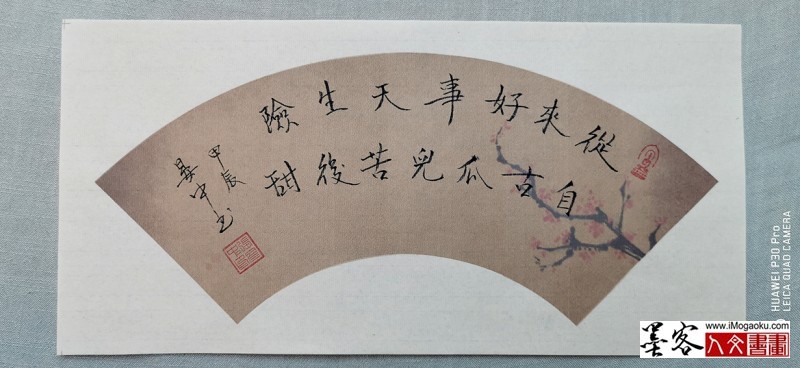 從來好事天生險
自古瓜兒苦後甜
甲辰
HUAWEI P30 Pro
LEICA QUAD CAMERA
墨客
www.iMogaoku.com
人文書畫